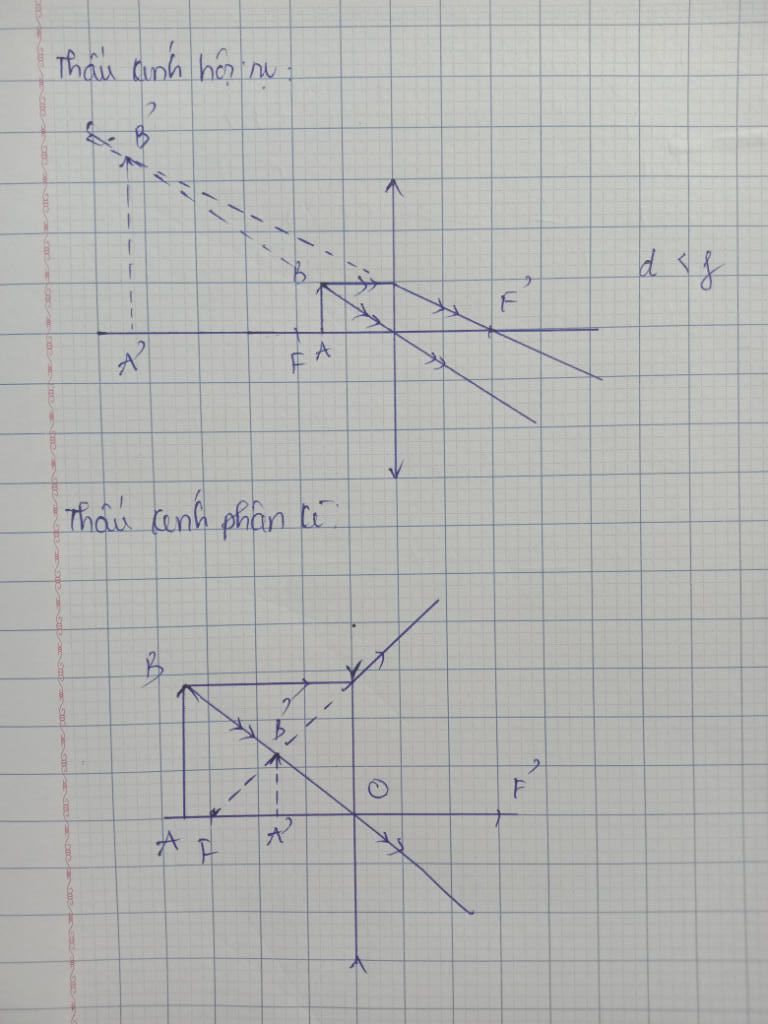 Thấu kính hội tụ:
B'
B
d < f
F'
A'
F
A
Thấu kính phân kì:
B
B'
O
F'
A
F
A'